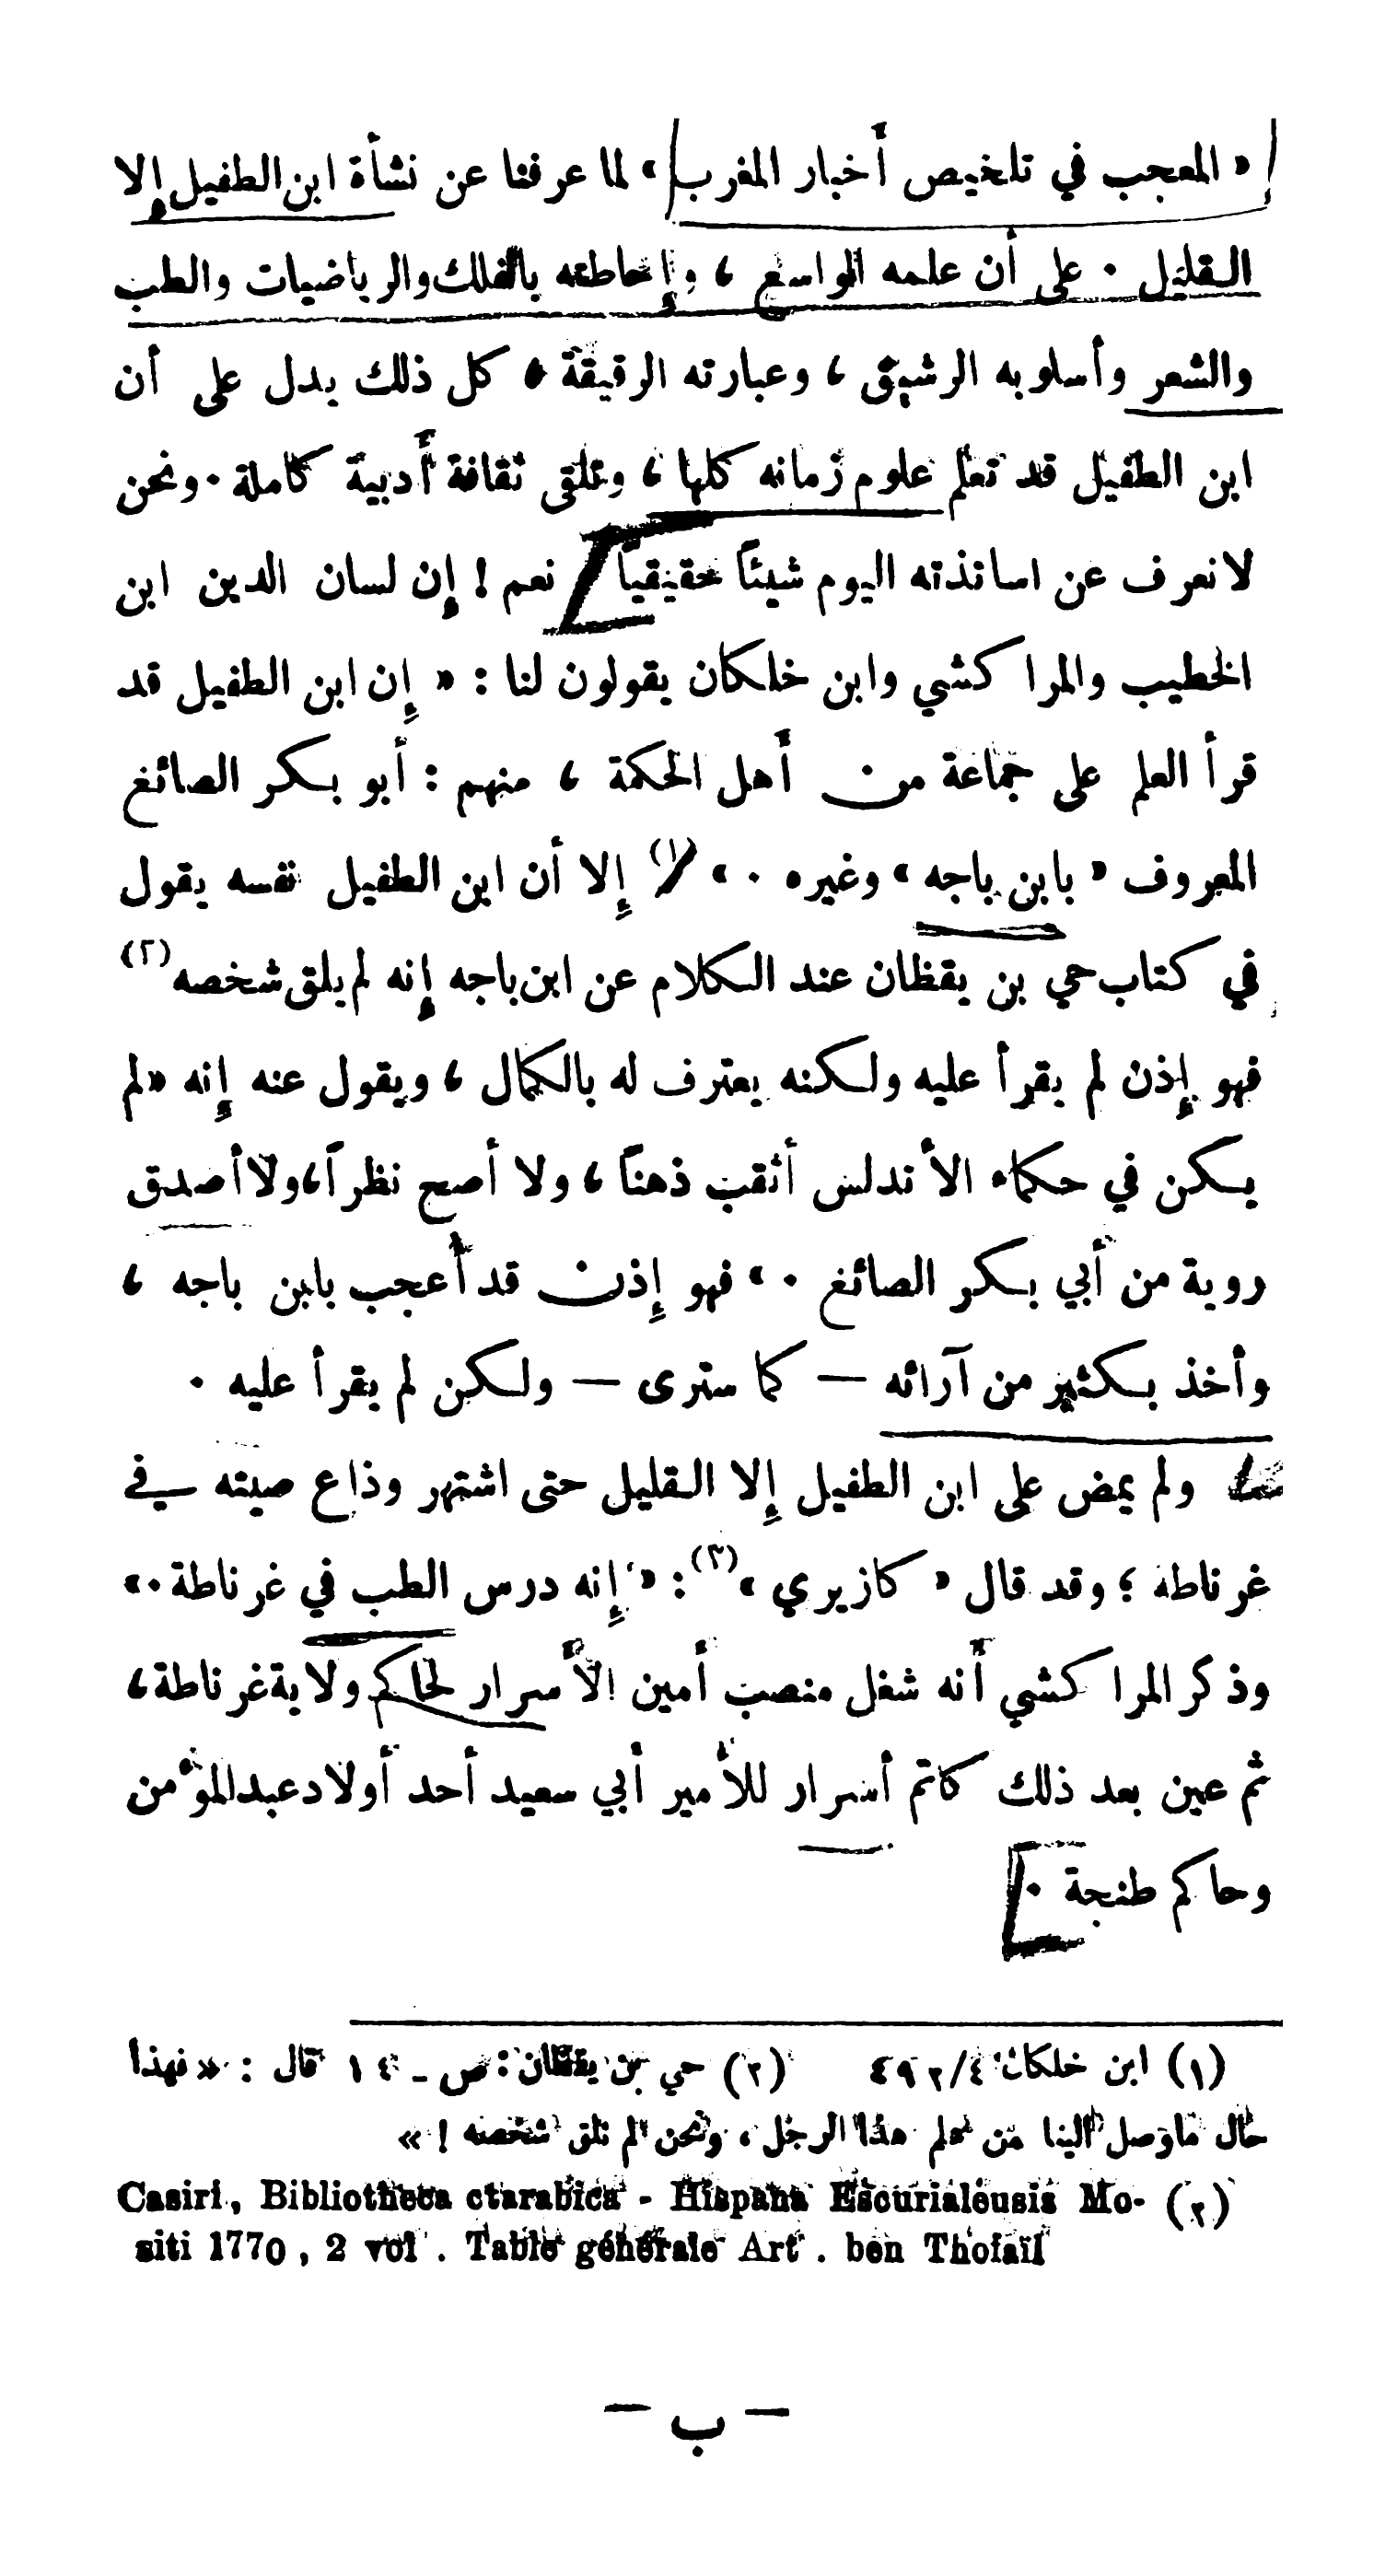 « المعجب في تلخيص أخبار المغرب » لما عرفنا عن نشأة ابن الطفيل إلا
القليل . على أن علمه الواسع ، وإحاطته بالفلك والرياضيات والطب
والشعر وأسلوبه الرشيق ، وعبارته الرقيقة ، كل ذلك يدل على أن
ابن الطفيل قد تعلم علوم زمانه كلها ، وتلقى ثقافة أدبية كاملة . ونحن
لا نعرف عن اساتذته اليوم شيئاً حقيقياً نعم ! إن لسان الدين ابن
الخطيب والمراكشي وابن خلكان يقولون لنا : « إن ابن الطفيل قد
قرأ العلم على جماعة من أهل الحكمة ، منهم : أبو بكر الصائغ
المعروف « بابن باجه » وغيره . » (١) إلا أن ابن الطفيل نفسه يقول
في كتاب حي بن يقظان عند الكلام عن ابن باجه إنه لم يلق شخصه (٢)
فهو إذن لم يقرأ عليه ولكنه يعترف له بالكمال ، ويقول عنه إنه « لم
يكن في حكماء الأندلس أثقب ذهناً ، ولا أصح نظراً ، ولا أصدق
روية من أبي بكر الصائغ . » فهو إذن قد أعجب بابن باجه ،
وأخذ بكثير من آرائه — كما سترى — ولكن لم يقرأ عليه .
ولم يمض على ابن الطفيل إلا القليل حتى اشتهر وذاع صيته في
غرناطه ؛ وقد قال « كازيري » (٣) : « إنه درس الطب في غرناطة . »
وذكر المراكشي أنه شغل منصب أمين الأسرار لحاكم ولاية غرناطة ،
ثم عين بعد ذلك كاتم أسرار للأمير أبي سعيد أحد أولاد عبد المؤمن
وحاكم طنجة .
(١) ابن خلكان ٤/٤٩٢ (٢) حي بن يقظان : ص - ١٤ قال : « فهذا
حال ما وصل الينا من علم هذا الرجل ، ونحن لم نلق شخصه ! »
(٣) Casiri, Bibliotheca ctarabica - Hispana Escurialensis Mo-
siti 1770 , 2 vol . Table générale Art . ben Thofaïl
— ب —